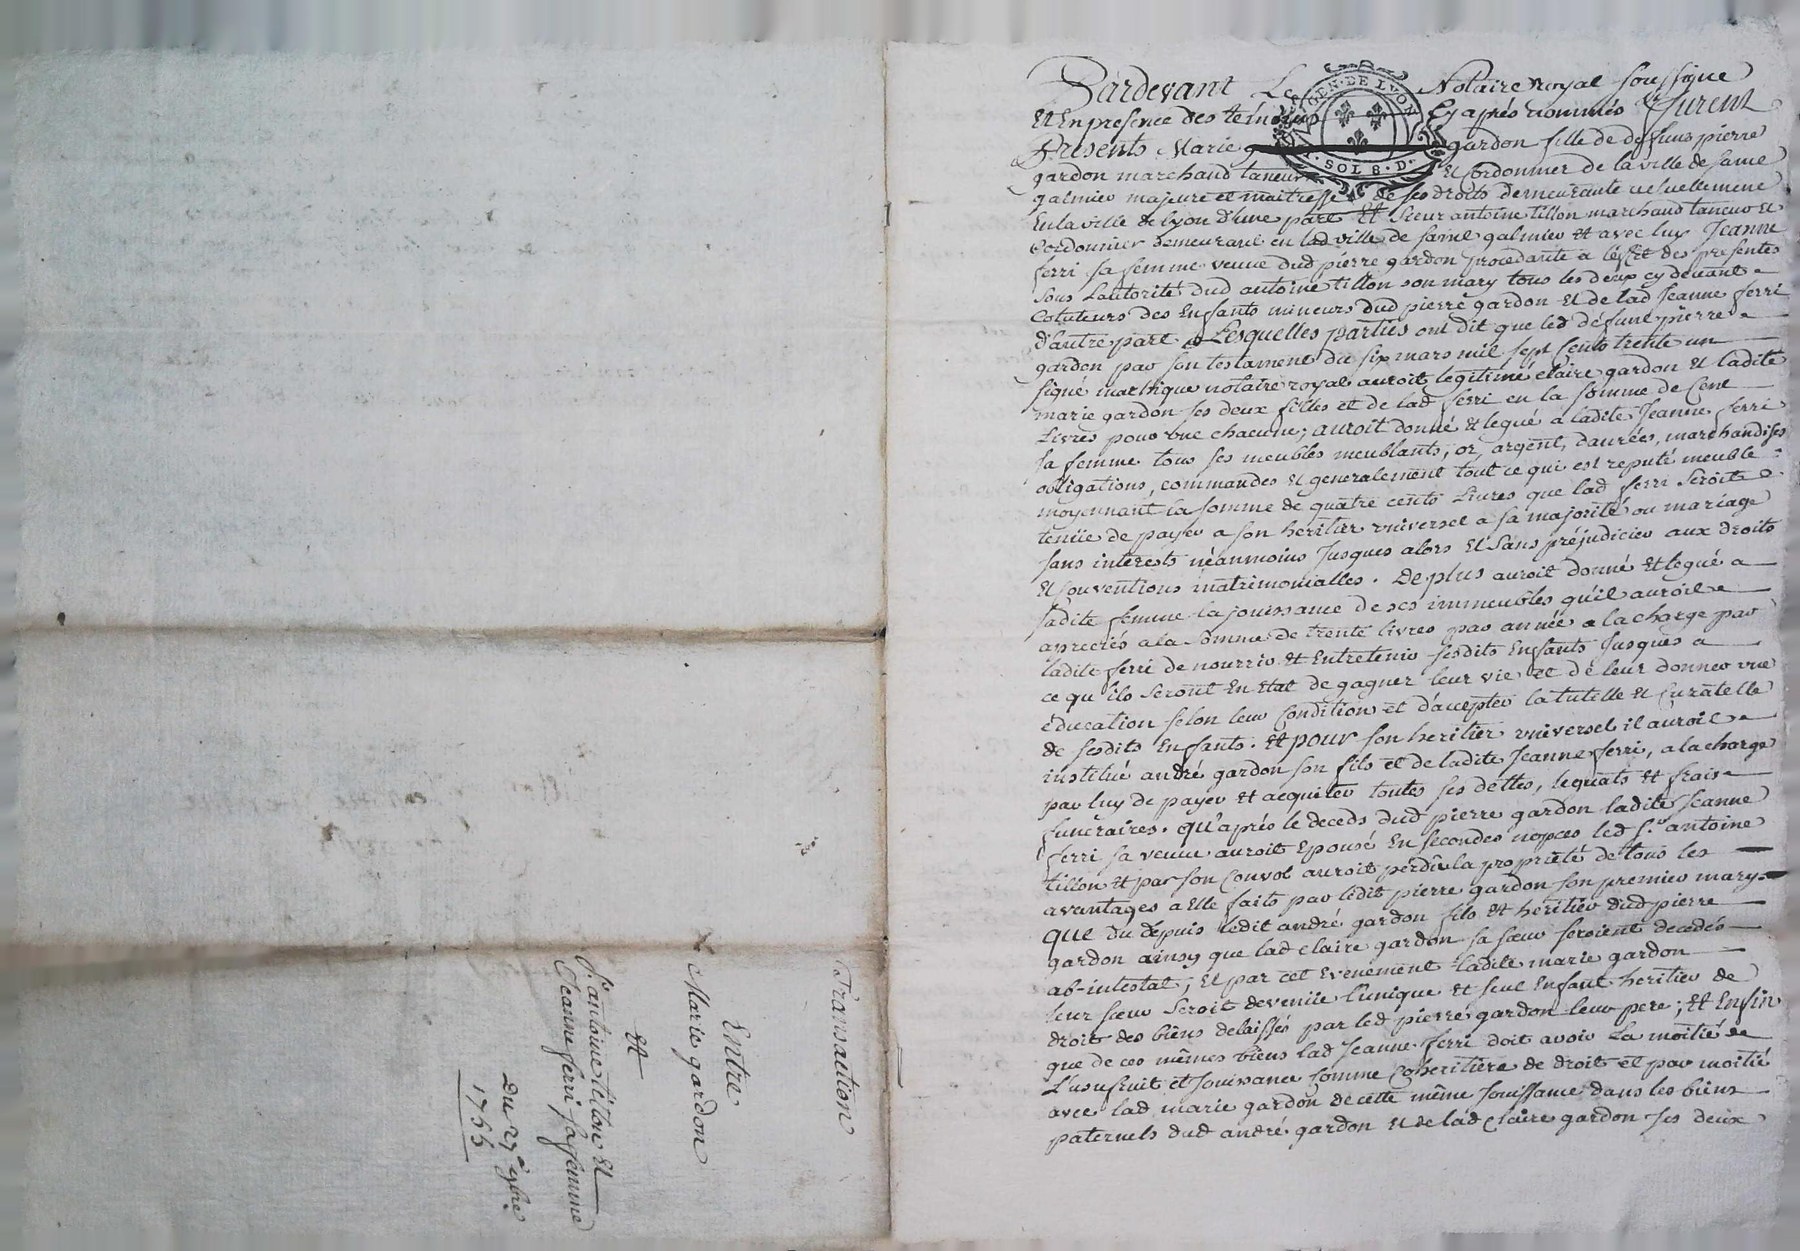 Transaction
Entre
Marie gardon
Et
Sr. antoine tillon Et
Jeanne ferri sa femme
Du 27e. xbre.
1755
Pardevant Le Notaire Royal soussigné
Et En presence des temoins Cy aprés nommés Furent
Presents Marie gardon fille de defunt pierre
gardon marchand taneur Et Cordonnier de la ville de saint
galmier majeure et maitresse de ses droits demeurante actuellement
En la ville de Lyon d'une part Et Sieur antoine tillon marchand taneur Et
Cordonnier demeurant en lad ville de saint galmier Et avec luy Jeanne
ferri sa femme veuve dud pierre gardon procedante a l'effet des presentes
sous L'autorité dud antoine tillon son mary tous les deux cy devant
Cotuteurs des Enfants mineurs dud pierre gardon Et de lad Jeanne ferri
d'autre part. Lesquelles parties ont dit que led défunt pierre
gardon par son testament du six mars mil sept Cents trente un
signé notaire royal auroit legitimé claire gardon Et ladite
marie gardon ses deux filles et de lad ferri en la somme de Cent
Livres pour une chacune; auroit donné Et legué a ladite Jeanne ferri
sa femme tous ses meubles meublants, or, argent, danrées, marchandises
obligations, commandes Et generalement tout ce qui est reputé meuble
moyennant la somme de quatre cents Livres que lad ferri seroit
tenüe de payer a son heritier universel a sa majorité ou mariage
sans interests néanmoins Jusques alors Et sans préjudicier aux droits
Et Conventions matrimonialles. De plus auroit donné Et legué a
sadite femme la jouissance de ses immeubles qu'il auroit
apreciés a la somme de trente livres par année a la charge par
ladite ferri de nourrir Et Entretenir sesdits Enfants Jusques a
ce qu'ils seront En Etat de gagner leur vie Et de leur donner une
éducation selon leur Condition et d'accepter la tutelle Et Curatelle
de sesdits Enfants. Et pour son heritier universel il auroit
institué andré gardon son fils et de ladite Jeanne ferri, a la charge
par luy de payer Et acquiter toutes ses dettes, lequats Et frais
funeraires. qu'aprés le deceds dud pierre gardon ladite Jeanne
ferri sa veuve auroit Epousé En secondes nopces led sr. antoine
tillon Et par son Convol auroit perdu la proprieté de tous les
avantages a Elle faits par ledit pierre gardon son premier mary
que du depuis ledit andré gardon fils Et heritier dud pierre
gardon ainsy que lad claire gardon sa sœur seroient decedés
ab-intestat; Et par cet Evenement ladite marie gardon
leur sœur seroit devenüe l'unique Et seul Enfant heritier de
droit des biens delaissés par led pierre gardon leur pere; Et Enfin
que de ces mêmes biens lad Jeanne ferri doit avoir La moitié de
L'usufruit et Jouissance comme Coheritiere de droit et par moitié
avec lad marie gardon de cette même Jouissance dans les biens
paternels dud andré gardon Et de lad Claire gardon ses deux
GEN. DE LYON
SOL 8. D.